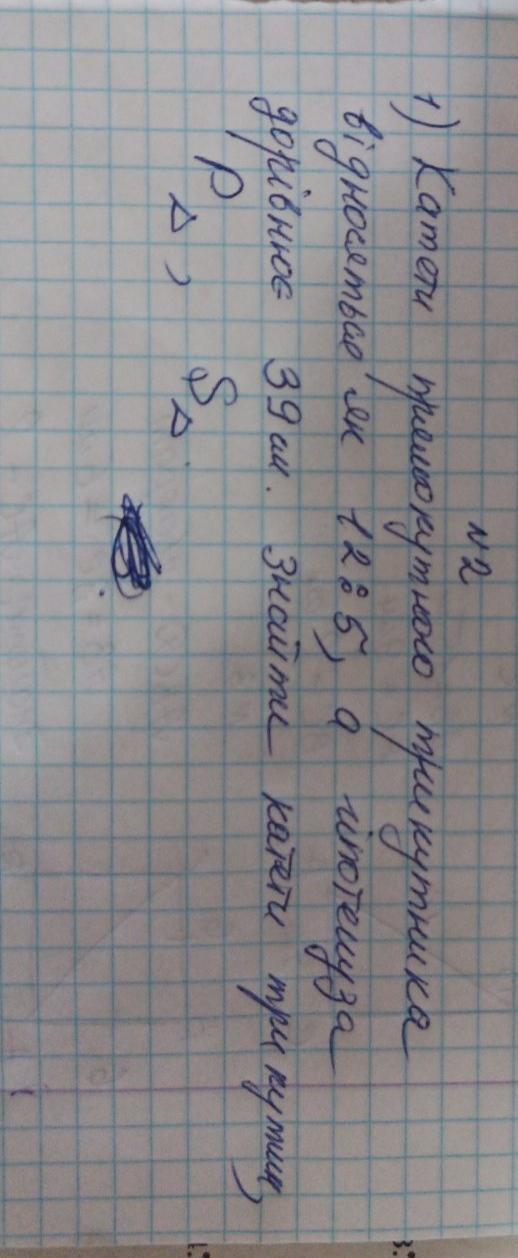 N2
1) Катети прямокутного трикутника
відносяться як 12:5, а гіпотенуза
дорівнює 39 см. Знайти катети трикутник,
P△, S△.